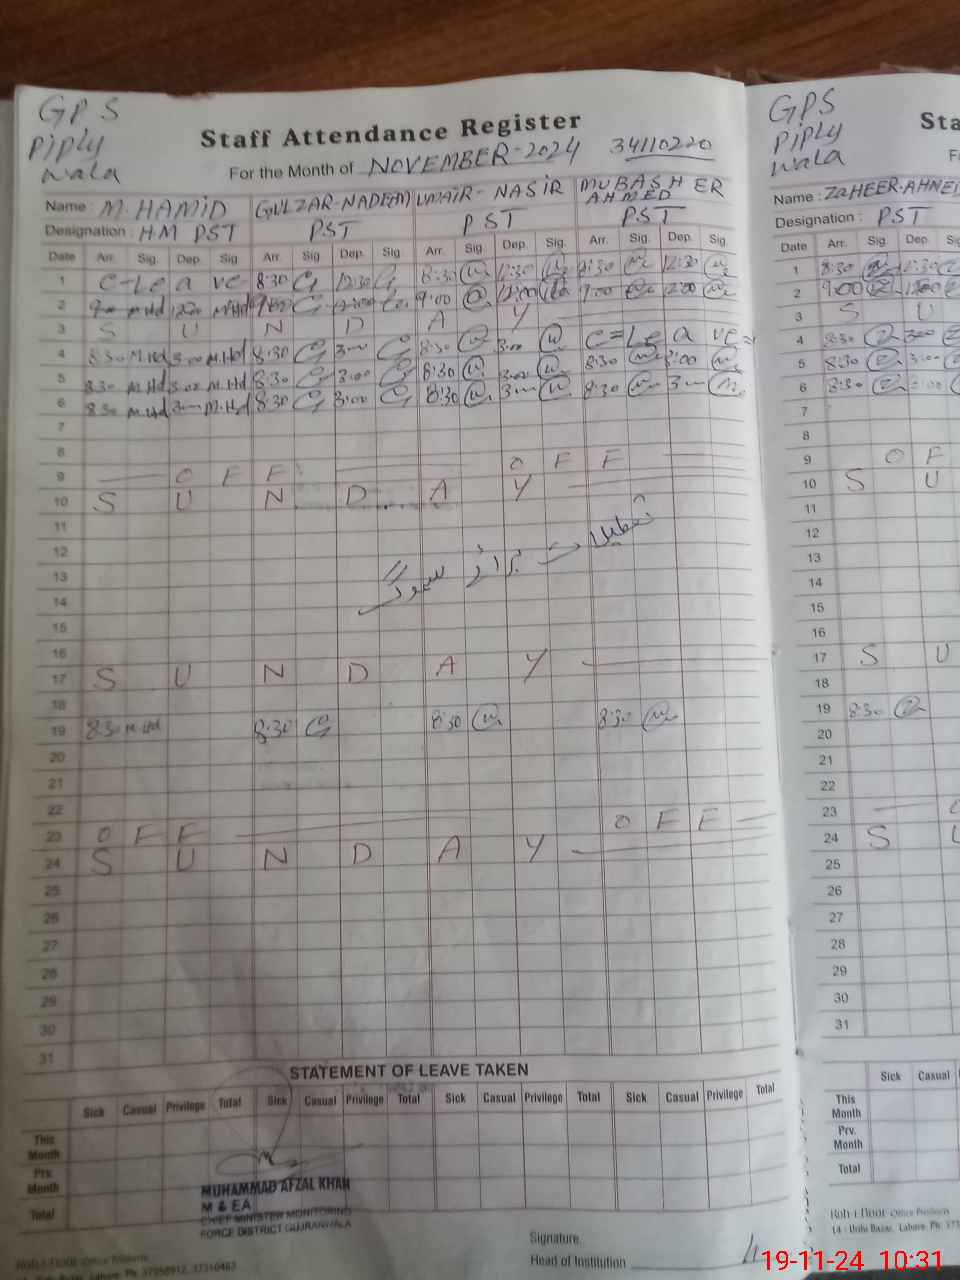 GPS
Piply
wala
Staff Attendance Register
For the Month of NOVEMBER-2024 34110220
Name : M.HAMID GULZAR-NADEEM UMAIR-NASIR MUBASHER AHMED
Designation : HM PST PST PST PST
Date Arr. Sig. Dep. Sig. Arr. Sig. Dep. Sig. Arr. Sig. Dep. Sig. Arr. Sig. Dep. Sig.
1 C-Leave 8:30 12:30 8:30 12:30 8:30 12:30
2 9:00 M.Hd 12:00 M.Hd 9:00 12:00 9:00 12:00 9:00 12:00
3 S U N D A Y
4 8:30 M.Hd 3:00 M.Hd 8:30 3:00 8:30 3:00 C=Leave=
5 8:30 M.Hd 3:00 M.Hd 8:30 3:00 8:30 3:00 8:30 3:00
6 8:30 M.Hd 3:00 M.Hd 8:30 3:00 8:30 3:00 8:30 3:00
7
8
9 O F F O F F
10 S U N D A Y
11
12
تعطیلات برائے سموگ
13
14
15
16
17 S U N D A Y
18
19 8:30 M.Hd 8:30 8:30 8:30
20
21
22
23 O F F O F F
24 S U N D A Y
25
26
27
28
29
30
31
STATEMENT OF LEAVE TAKEN
Sick Casual Privilege Total Sick Casual Privilege Total Sick Casual Privilege Total Sick Casual Privilege Total
This Month
Prv. Month
Total
MUHAMMAD AFZAL KHAN
M & EA
CHIEF MINISTER MONITORING
FORCE DISTRICT GUJRANWALA
Signature
Head of Institution
GPS
Piply
wala
Sta
F
Name : ZAHEER-AHMED
Designation : PST
Date Arr. Sig. Dep. Sig
1 8:30 12:30
2 9:00 12:00
3 S U
4 8:30 3:00
5 8:30 3:00
6 8:30 3:00
7
8
9 O F
10 S U
11
12
13
14
15
16
17 S U
18
19 8:30
20
21
22
23 O
24 S U
25
26
27
28
29
30
31
Sick Casual
This Month
Prv. Month
Total
19-11-24 10:31